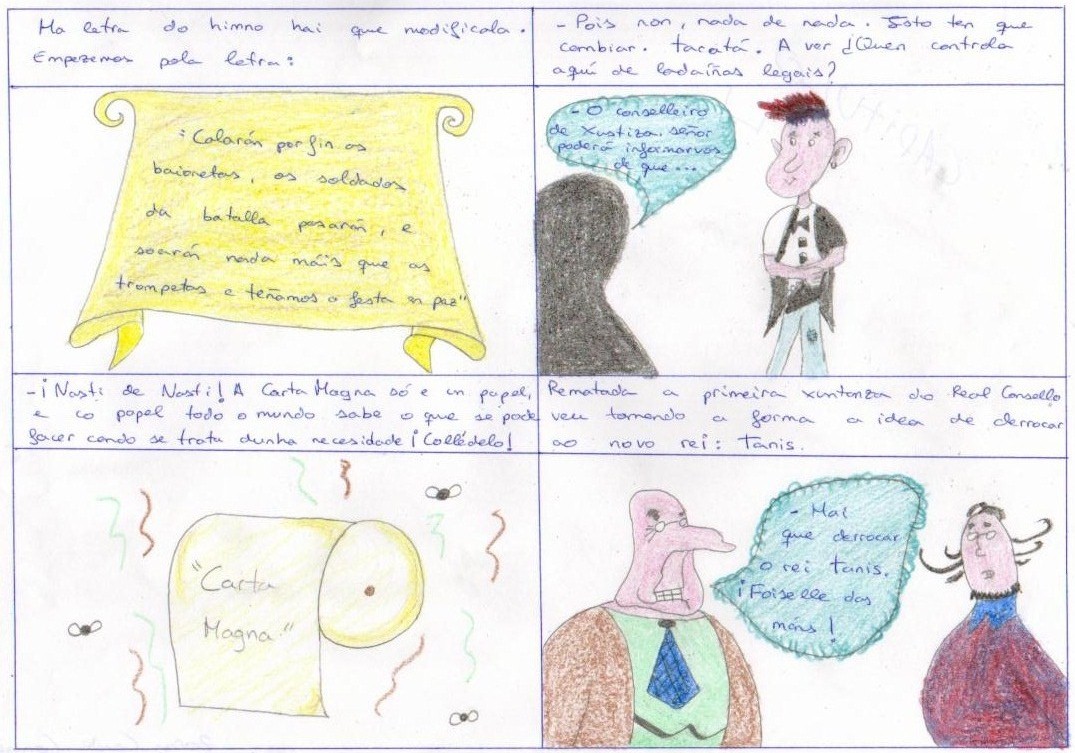 Ma letra do himno hai que modificala.
Empezemos pola letra:
"Calarán por fin os
baionetas, os soldados
da batalla pasarán, e
soarán nada máis que as
trompetas e teñamos a festa en paz"
- Pois non, nada de nada. Isto ten que
cambiar. tacatá. A ver ¿Quen controla
aquí de ladaíñas legais?
- O conselleiro
de Xustiza, señor
poderá informarvos
de que...
- ¡Nasti de Nasti! A Carta Magna só e un papel,
e co papel todo o mundo sabe o que se pode
facer cando se trata dunha necesidade ¡Collédelo!
"Carta
Magna"
Rematada a primeira xuntanza do Real Consello
veu tomando a forma a idea de derrocar
ao novo rei: Tanis.
- Hai
que derrocar
o rei tanis.
¡Foiselle das
mans!